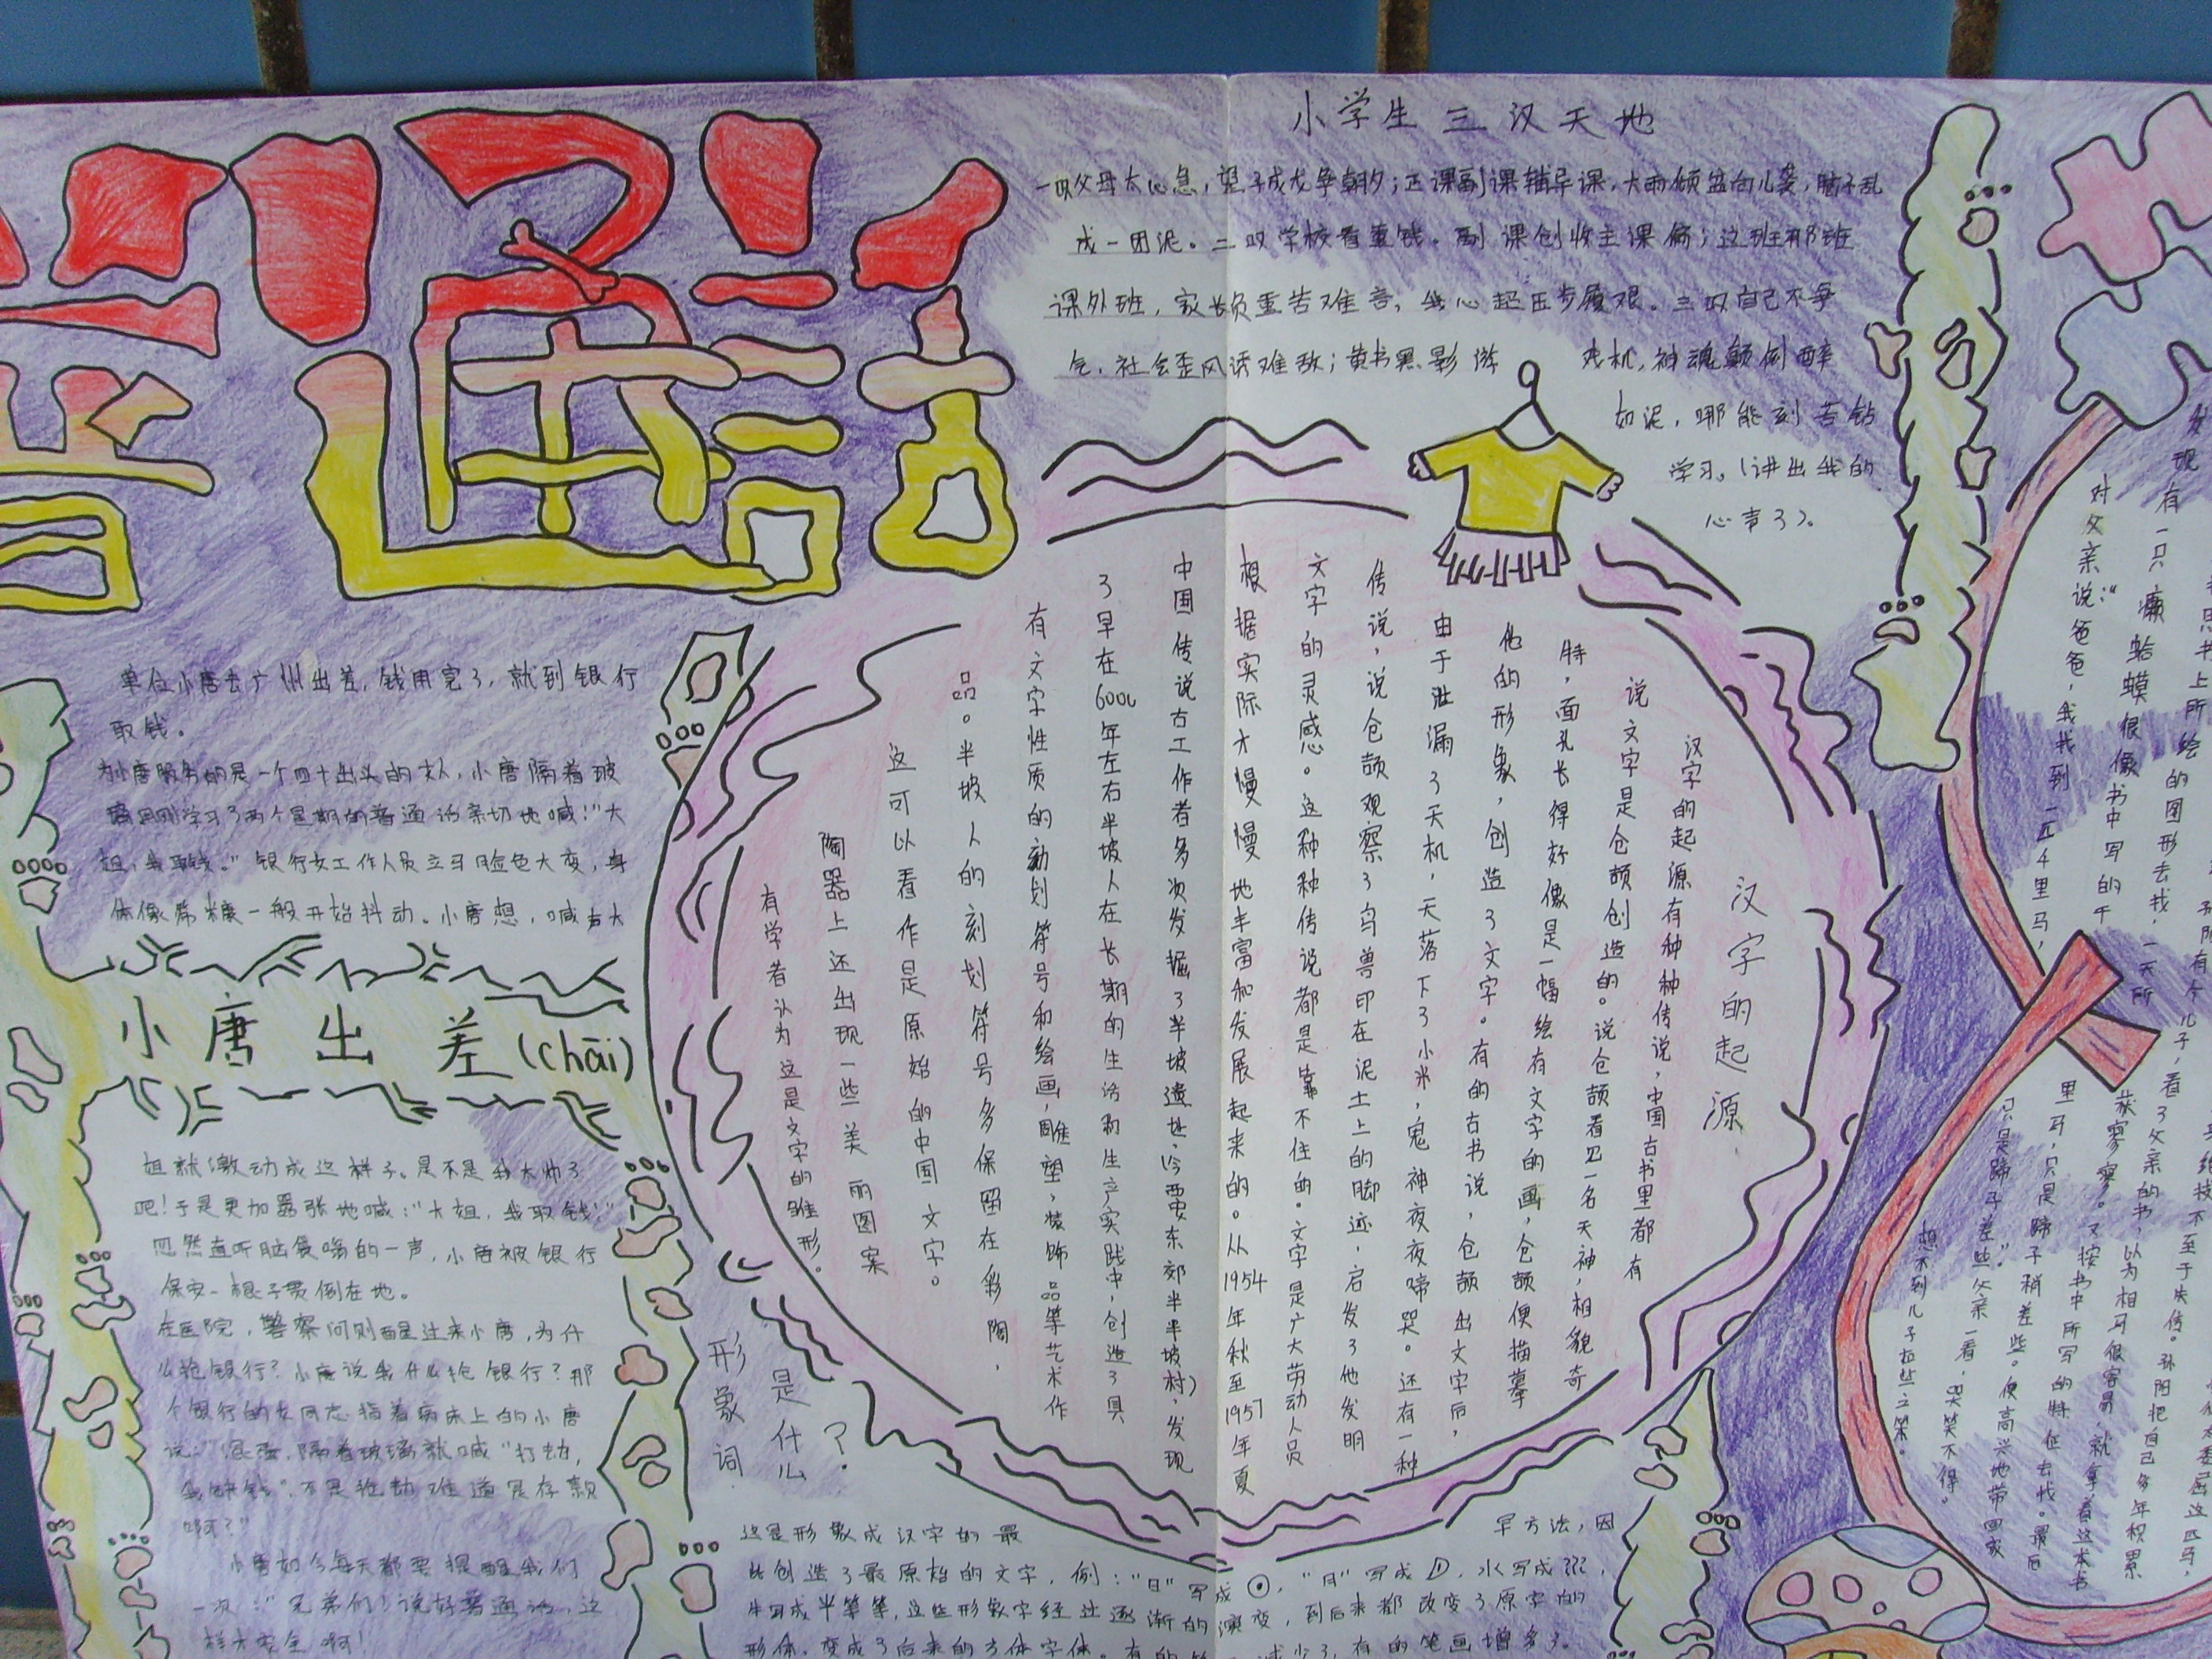 普通话
小学生三汉天地
一叹父母太心急，望子成龙争朝夕；正课副课辅导课，大雨倾盆向儿袭，脑子乱
成一团泥。二叹学校看重钱。副课创收主课偏；这班那班
课外班，家长负重苦难言，我心超压步履艰。三叹自己不争
气，社会歪风诱难敌；黄书黑影游戏机，神魂颠倒醉
如泥，哪能刻苦钻
学习。（讲出我的
心声了）。
单位小唐去广州出差，钱用完了，就到银行
取钱。
为小唐服务的是一个四十出头的女人，小唐隔着玻
璃用刚学习了两个星期的普通话亲切地喊："大
姐，我取钱。"银行女工作人员立马脸色大变，身
体像筛糠一般开始抖动。小唐想，喊声大
小唐出差(chāi)
姐就激动成这样子。是不是我太帅了
吧！于是更加嚣张地喊："大姐，我取钱！"
忽然直听脑袋嗡的一声，小唐被银行
保安一棍子贯倒在地。
在医院，警察问刚醒过来小唐，为什
么抢银行？小唐说我什么抢银行？那
个银行的女同志指着病床上的小唐
说："混蛋，隔着玻璃就喊"打劫，
我缺钱"，不是抢劫难道是存款
啊？"
小唐如今每天都要提醒我们
一次："兄弟们！说好普通话，这
样才安全啊！
汉字的起源
汉字的起源有种种传说，中国古书里都有
说文字是仓颉创造的。说仓颉看见一名天神，相貌奇
特，面孔长得好像是一幅绘有文字的画，仓颉便描摹
他的形象，创造了文字。有的古书说，仓颉出文字后，
由于泄漏了天机，天落下了小米，鬼神夜夜啼哭。还有一种
传说，说仓颉观察了鸟兽印在泥土上的脚迹，启发了他发明
文字的灵感。这种种传说都是靠不住的。文字是广大劳动人员
根据实际才慢慢地丰富和发展起来的。从1954年秋至1957年夏
中国传说古工作者多次发掘了半坡遗址，（今西安东郊半坡村），发现
了早在6000年左右半坡人在长期的生活和生产实践中，创造了具
有文字性质的刻划符号和绘画，雕塑，装饰品等艺术作
品。半坡人的刻划符号多保留在彩陶，
这可以看作是原始的中国文字。
陶器上还出现一些美丽图案
有学者认为这是文字的雏形。
形象词
是什么？
这是形象成汉字的最早方法，因
此创造了最原始的文字，例："日"写成⊙，"月"写成D，水写成
牛写成半等等，这些形象字经过逐渐的演变，到后来都改变了原字的
形体，变成了后来的方体字体。有的减少了，有的笔画增多了。
思书上所绘的图形去找，一天所
发现有一只癞蛤蟆很像书中写的千
对父亲说："爸爸，我找到一匹千里马，
里马，只是蹄子稍差些。便高兴地带回家
只是蹄子差些"。父亲一看，哭笑不得。
想不到儿子